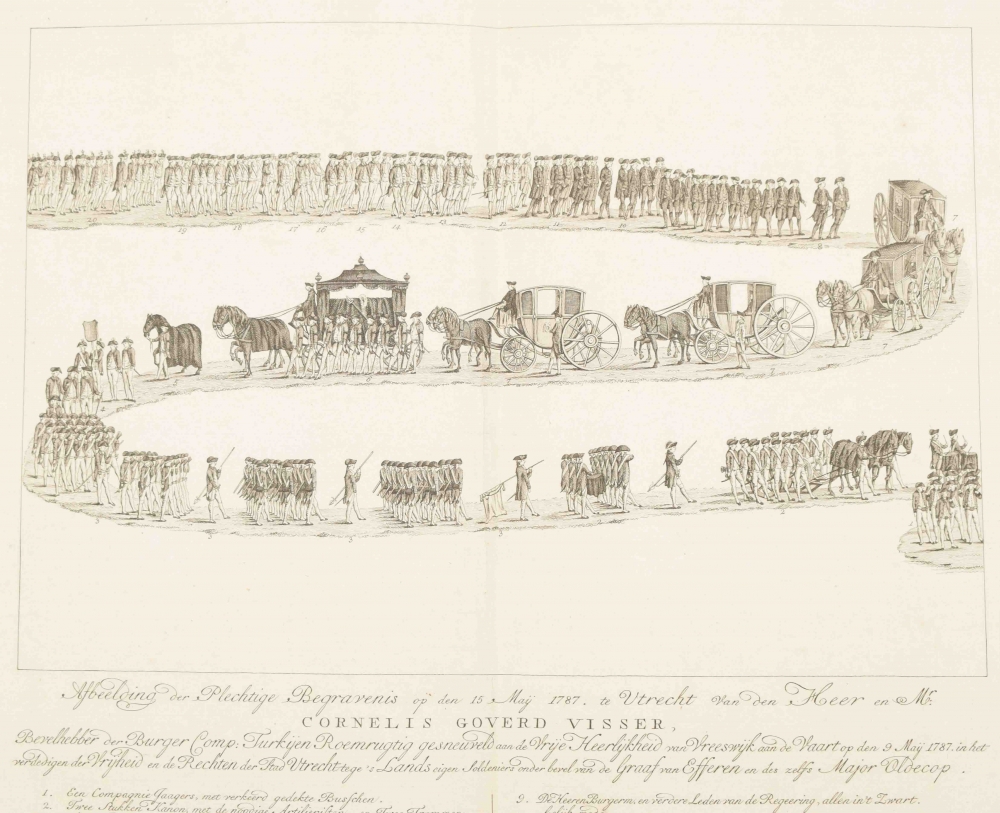 19 18 17 16 15 14 13 12 11 10 9 8 7
5 6 7 8 7
3 3 3 3 2 1
Afbeelding der Plechtige Begravenis op den 15 Maÿ 1787. te Utrecht van den Heer en Mr.
CORNELIS GOVERD VISSER,
Bevelhebber der Burger Comp: Turkijen Roemrugtig gesneuveld aan de Vrije Heerlijkheid van Vreeswijk aan de Vaart op den 9 Maÿ 1787. in het
verdedigen der Vrijheid en de Rechten der Stad Utrecht tege 's Lands eigen Soldeniers onder bevel van de Graaf van Efferen en des zelfs Major Oldecop.
1. Een Compagnie Jaagers, met verkeerd gedekte Busschen.
2. Twee Stukken Kanon, met de noodige Artilleristen
9. De Heeren Burgerm. en verdere Leden van de Regeering, allen in't Zwart.